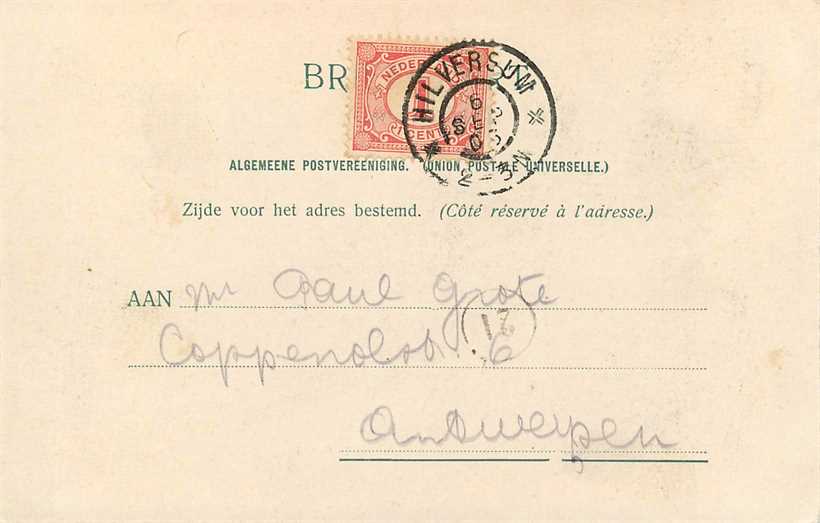 BR
NEDERLAND
1 CENT
HILVERSUM
ALGEMEENE POSTVEREENIGING. (UNION POSTALE UNIVERSELLE.)
Zijde voor het adres bestemd. (Côté réservé à l'adresse.)
AAN Mr Paul Grote
21
6
Antwerpen